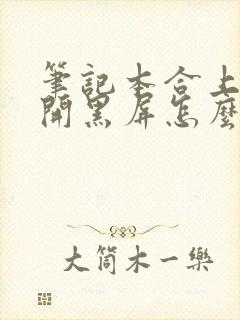 筆記本合上
開黑屏怎麼
大筒木一樂